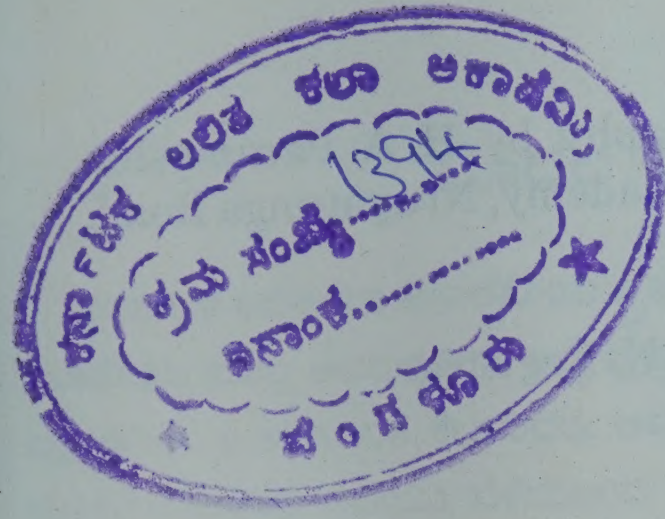 ಕರ್ನಾಟಕ ಲಲಿತ ಕಲಾ ಅಕಾಡೆಮಿ,
ಕ್ರಮ ಸಂಖ್ಯೆ.......... 1394
ದಿನಾಂಕ..........
ಬೆಂಗಳೂರು